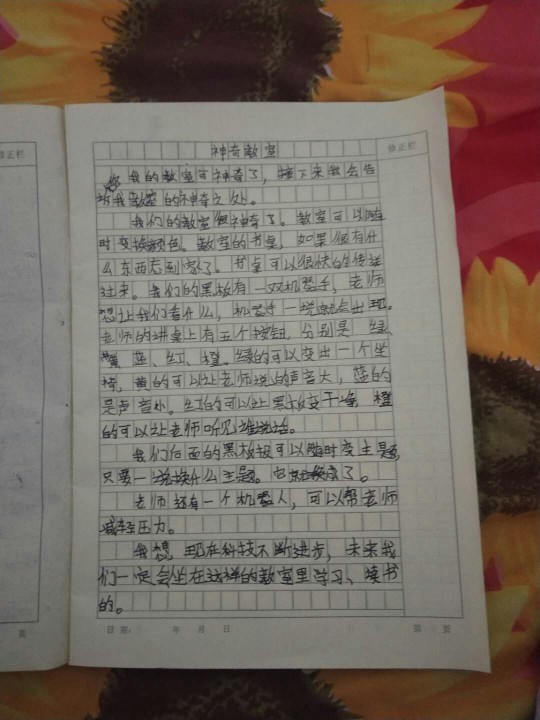 修正栏
神奇教室
修正栏
我的教室可神奇了，接下来我会告
诉我教室的神奇之处。
我们的教室很神奇了。教室可以随
时变换颜色。教室的书桌，如果你有什
么东西忘到家了。书桌可以很快的传送
过来。我们的黑板有一双机器手，老师
想让我们看什么，机器手一说就会出现。
老师的讲桌上有五个按钮，分别是 绿、
黄、蓝、红、橙。绿的可以变出一个坐
椅，黄的可以让老师说的声音大，蓝的
是声音小。红的可以让黑板变干净 橙
的可以让老师听见谁说话。
我们后面的黑板报可以随时变主题，
只要一说换什么主题。它就换成了。
老师还有一个机器人，可以帮老师
减轻压力。
我想 现在科技不断进步，未来我
们一定会坐在这样的教室里学习、读书
的。
页
日期： 年 月 日
第 页